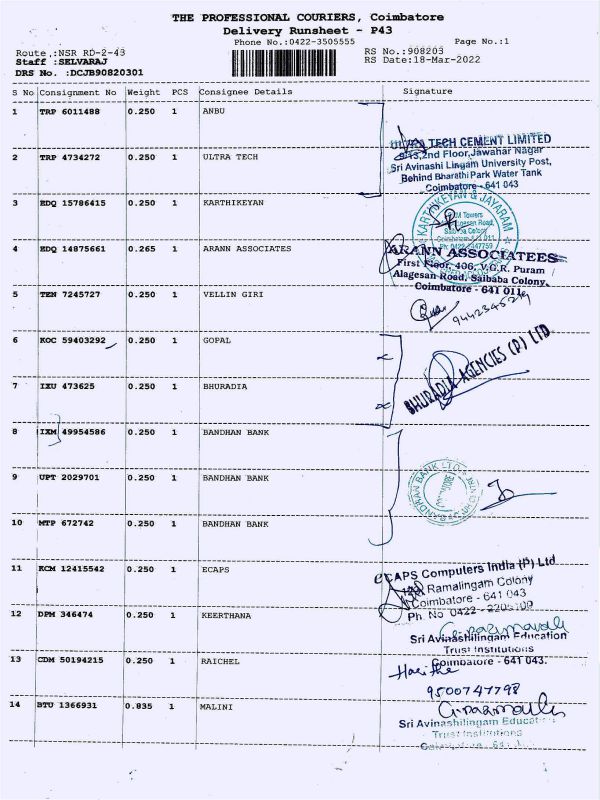 THE PROFESSIONAL COURIERS, Coimbatore
Delivery Runsheet - P43
Phone No.:0422-3505555
Page No.:1
Route ,:NSR RD-2-43
RS No.:908203
Staff :SELVARAJ
RS Date:18-Mar-2022
DRS No. :DCJB90820301
S No Consignment No Weight PCS Consignee Details Signature
1 TRP 6011488 0.250 1 ANBU
TECH CEMENT LIMITED
2nd Floor, Jawahar Nagar
2 TRP 4734272 0.250 1 ULTRA TECH
Sri Avinashi Lingam University Post,
Behind Bharathi Park Water Tank
Coimbatore - 641 043
3 EDQ 15786415 0.250 1 KARTHIKEYAN
KARTHIKEYAN & JAYARAM
4 EDQ 14875661 0.265 1 ARANN ASSOCIATES
ARANN ASSOCIATEES
First Floor, 406, V.G.R. Puram
Alagesan Road, Saibaba Colony,
Coimbatore - 641 011
5 TEN 7245727 0.250 1 VELLIN GIRI
6 KOC 59403292 0.250 1 GOPAL
BHURADIA AGENCIES (P) LTD
7 IXU 473625 0.250 1 BHURADIA
8 IXM 49954586 0.250 1 BANDHAN BANK
BANDHAN BANK LTD
9 UPT 2029701 0.250 1 BANDHAN BANK
10 MTP 672742 0.250 1 BANDHAN BANK
11 KCM 12415542 0.250 1 ECAPS
eCAPS Computers India (P) Ltd
Ramalingam Colony
Coimbatore - 641 043
12 DPM 346474 0.250 1 KEERTHANA
Ph. No 0422 -
Sri Avinashilingam Education
Trust Institutions
13 CDM 50194215 0.250 1 RAICHEL
Coimbatore - 641 043.
9500747798
14 BTU 1366931 0.835 1 MALINI
Sri Avinashilingam
Trust Institutions